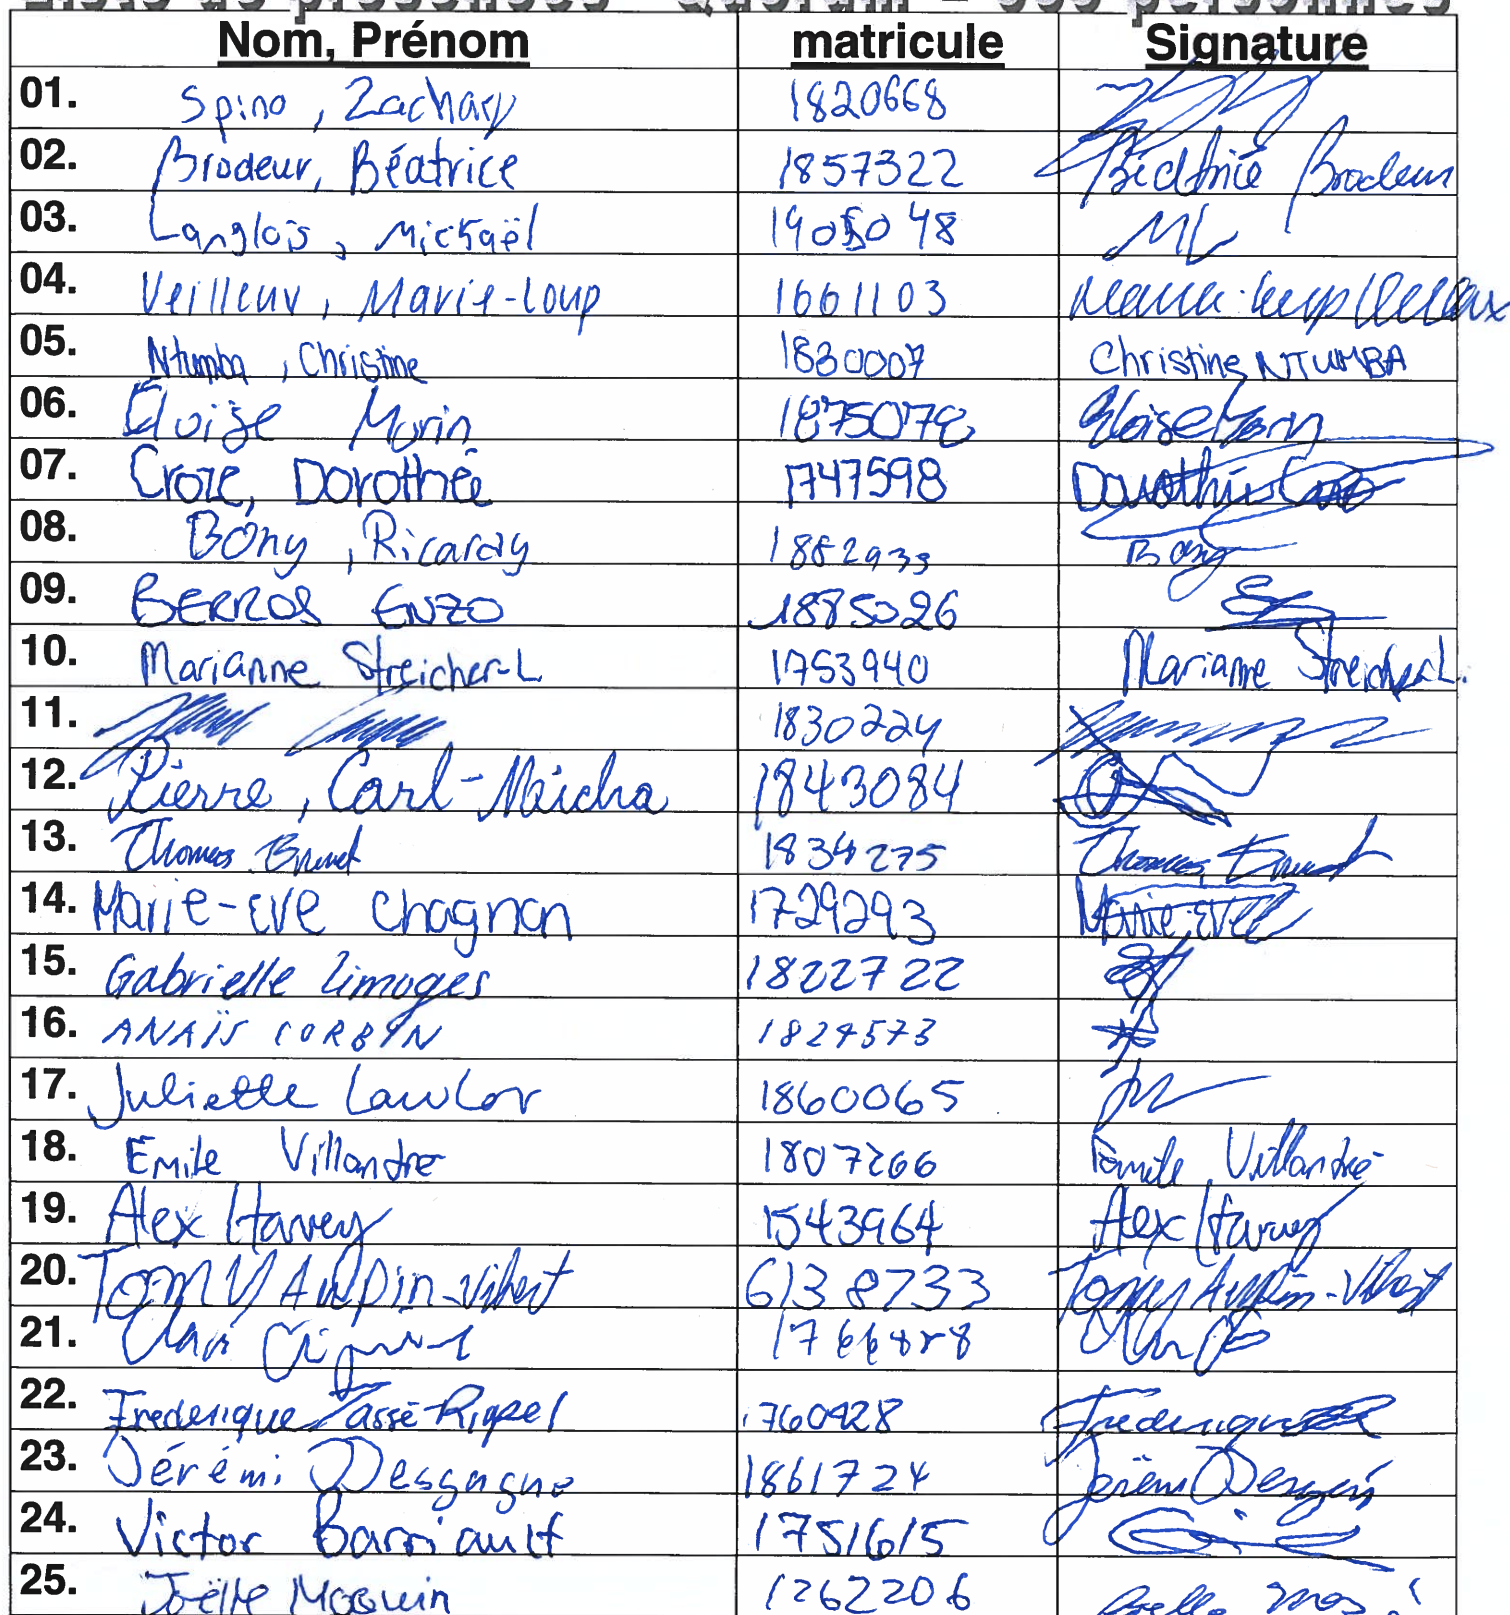 Liste de présences - Quorum = 363 personnes
Nom, Prénom matricule Signature
01. Spino, Zachary 1820668
02. Brodeur, Béatrice 1857322 Béatrice Brodeur
03. Langlois, Mickaël 1905048 ML
04. Veilleux, Marie-Loup 1661103 Marie-Loup Veilleux
05. Ntumba, Christine 1830007 Christine NTUMBA
06. Éloïse Morin 1875078 Éloïse Morin
07. Croze, Dorothée 1747598 Dorothée Croze
08. Bony, Ricardy 1882933 Bony
09. BERROS ENZO 1885026
10. Marianne Streicher-L 1753940 Marianne Streicher-L.
11. 1830224
12. Pierre, Carl-Maicha 1843084
13. Thomas Brunet 1834275 Thomas Brunet
14. Marie-eve Chagnon 1729293 Marie-eve
15. Gabrielle Limoges 1822722
16. ANAÏS CORBIN 1824573
17. Juliette Lawlor 1860065
18. Emile Villandré 1807266 Emile Villandré
19. Alex Harvey 1543964 Alex Harvey
20. Tommy Aulpin-Vibert 6138733 Tommy Aulpin-Vibert
21.
22. Frederique Tassé-Riopel 1760928 Frederique
23. Jérémi Desgagné 1861724 Jérémi Desgagné
24. Victor Barriault 1751615
25. Joëlle Moquin 1262206 Joelle